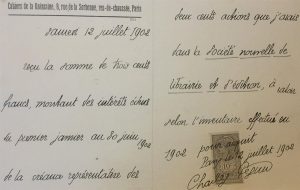 Cahiers de la Quinzaine, 8, rue de la Sorbonne, rez-de-chaussée, Paris
samedi 12 juillet 1902
reçu la somme de trois cents
francs, montant des intérêts échus
du premier janvier au 30 juin
1902
de la créance représentative des
deux cents actions que j'avais
dans la Société nouvelle de
librairie et d'édition, à valoir
selon l'inventaire effectué en
1902 pour acquit
Paris 12 juillet 1902
Charles Péguy